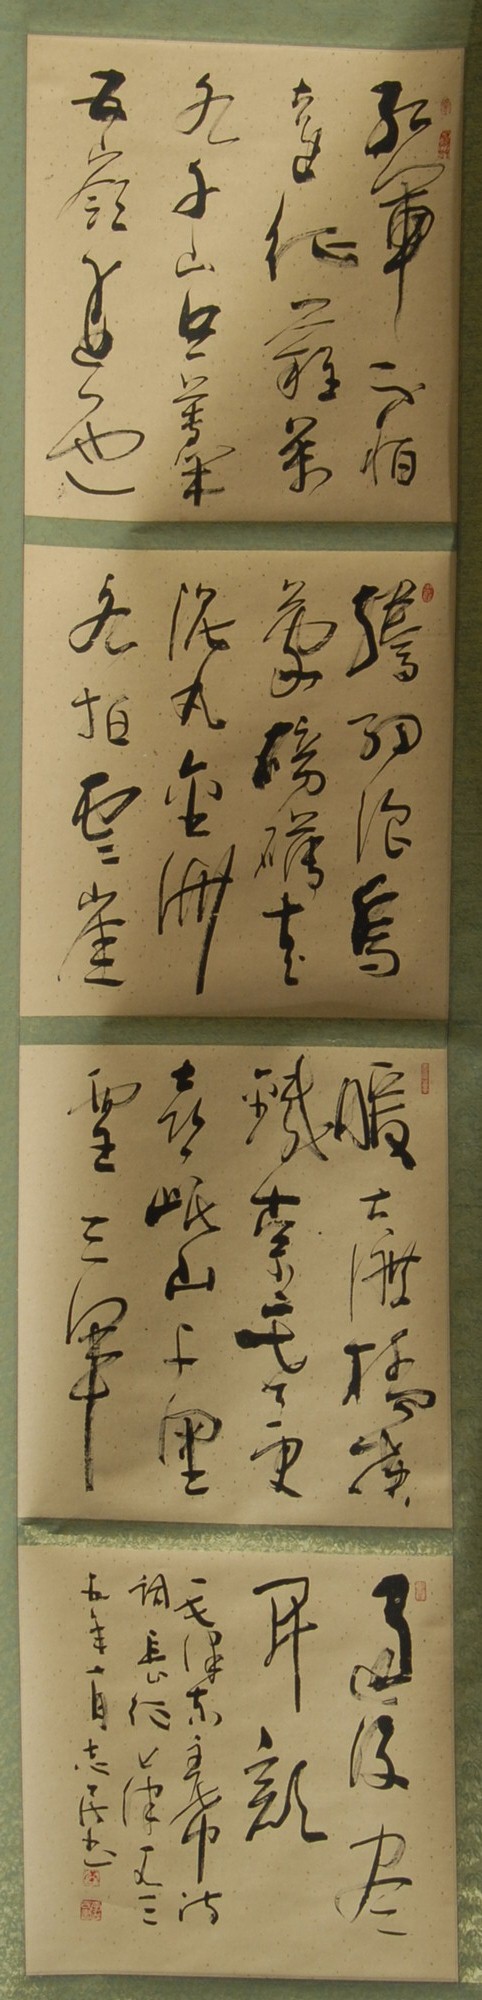 紅軍不怕
遠征難萬
水千山只等閑
五嶺逶迤
騰細浪烏
蒙磅礴走
泥丸金沙
水拍雲崖
暖大渡橋橫
鐵索寒更
喜岷山千里
雪三軍
過後尽
開顏
毛澤東主席詩
詞長征七律
五年一月志民書